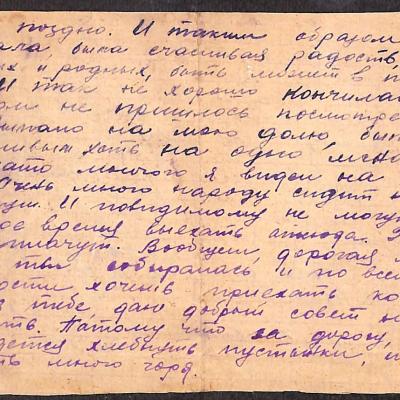 поздно. И таким образом
ала, была счастливая радость,
ых и родных, быть может в п
И так не хорошо кончилас
ом не пришлось посмотре
выпало на мою долю, был
ливым хоть на одно мгно
зато много я видел на
Очень много народу сидит н
ции. И повидимому не могу
ое время выехать отсюда.
плачут. Вообщем, дорогая
ты собиралась и по всей
ости, хочешь приехать ко
я тебе, даю добрый совет не
ть. Потому что за дорогу,
дется хлебнуть пустышки,
ть много горя.